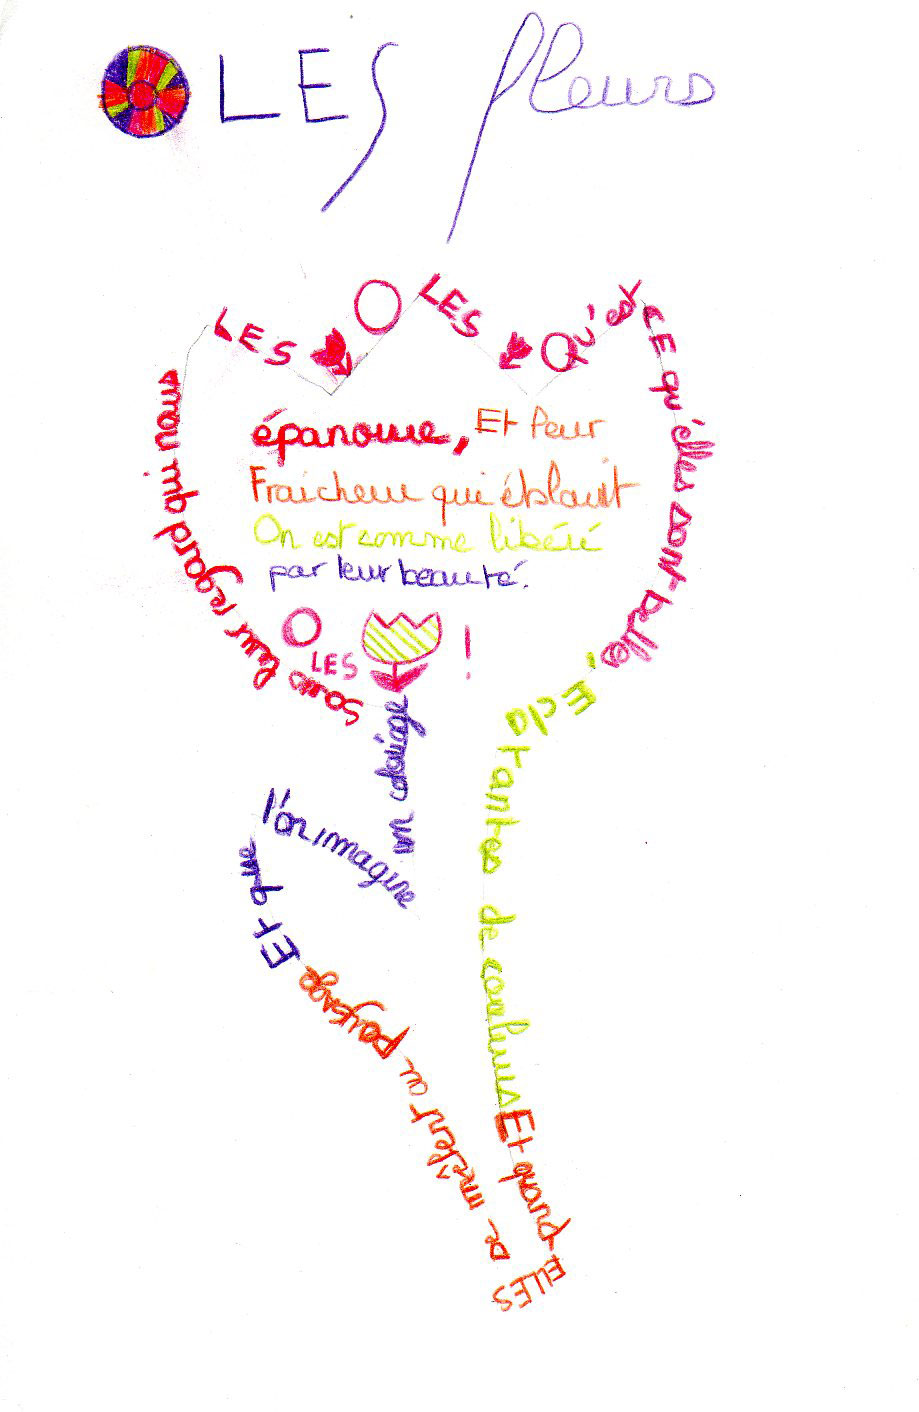 LES fleurs
LES
O LES
Qu'est
CE qu'elles sont belles,
Éclatantes de couleurs
Et quand
ELLES
se mêlent au paysage
Et que
l'on immagine
un coloriage
sous leur regard qui nous
épanouie, Et leur
Fraicheur qui éblouit
On est comme libéré
par leur beauté.
O LES !